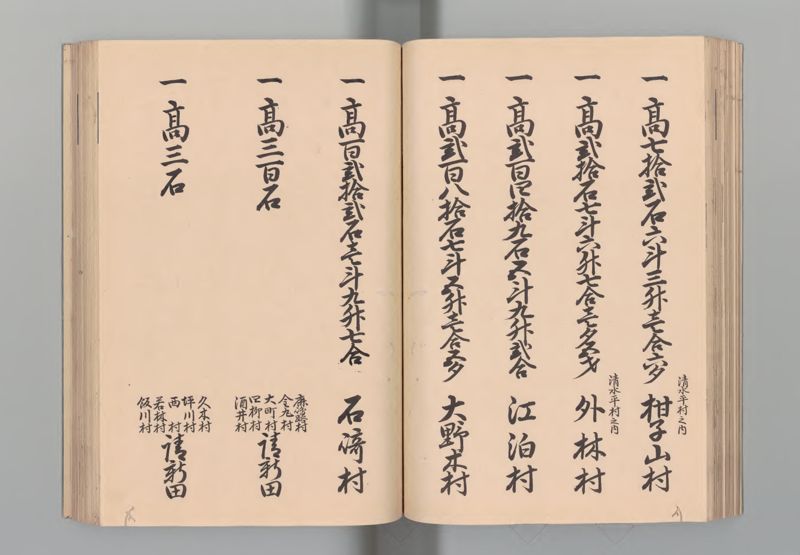 一高七拾弐石六斗三升壱合六夕
清水平村之内
柑子山村
一高弐拾石七斗六升七合壱夕五才
清水平村之内
外林村
一高弐百四拾九石五斗九升弐合
江泊村
一高弐百八拾石七斗五升壱合五夕
大野木村
一高百弐拾弐石壱斗九升七合
石﨑村
一高三百石
金丸村
大町村
四柳村
酒井村
請新田
一高三石
久木村
坪川村
西村
若林村
飯川村
請新田